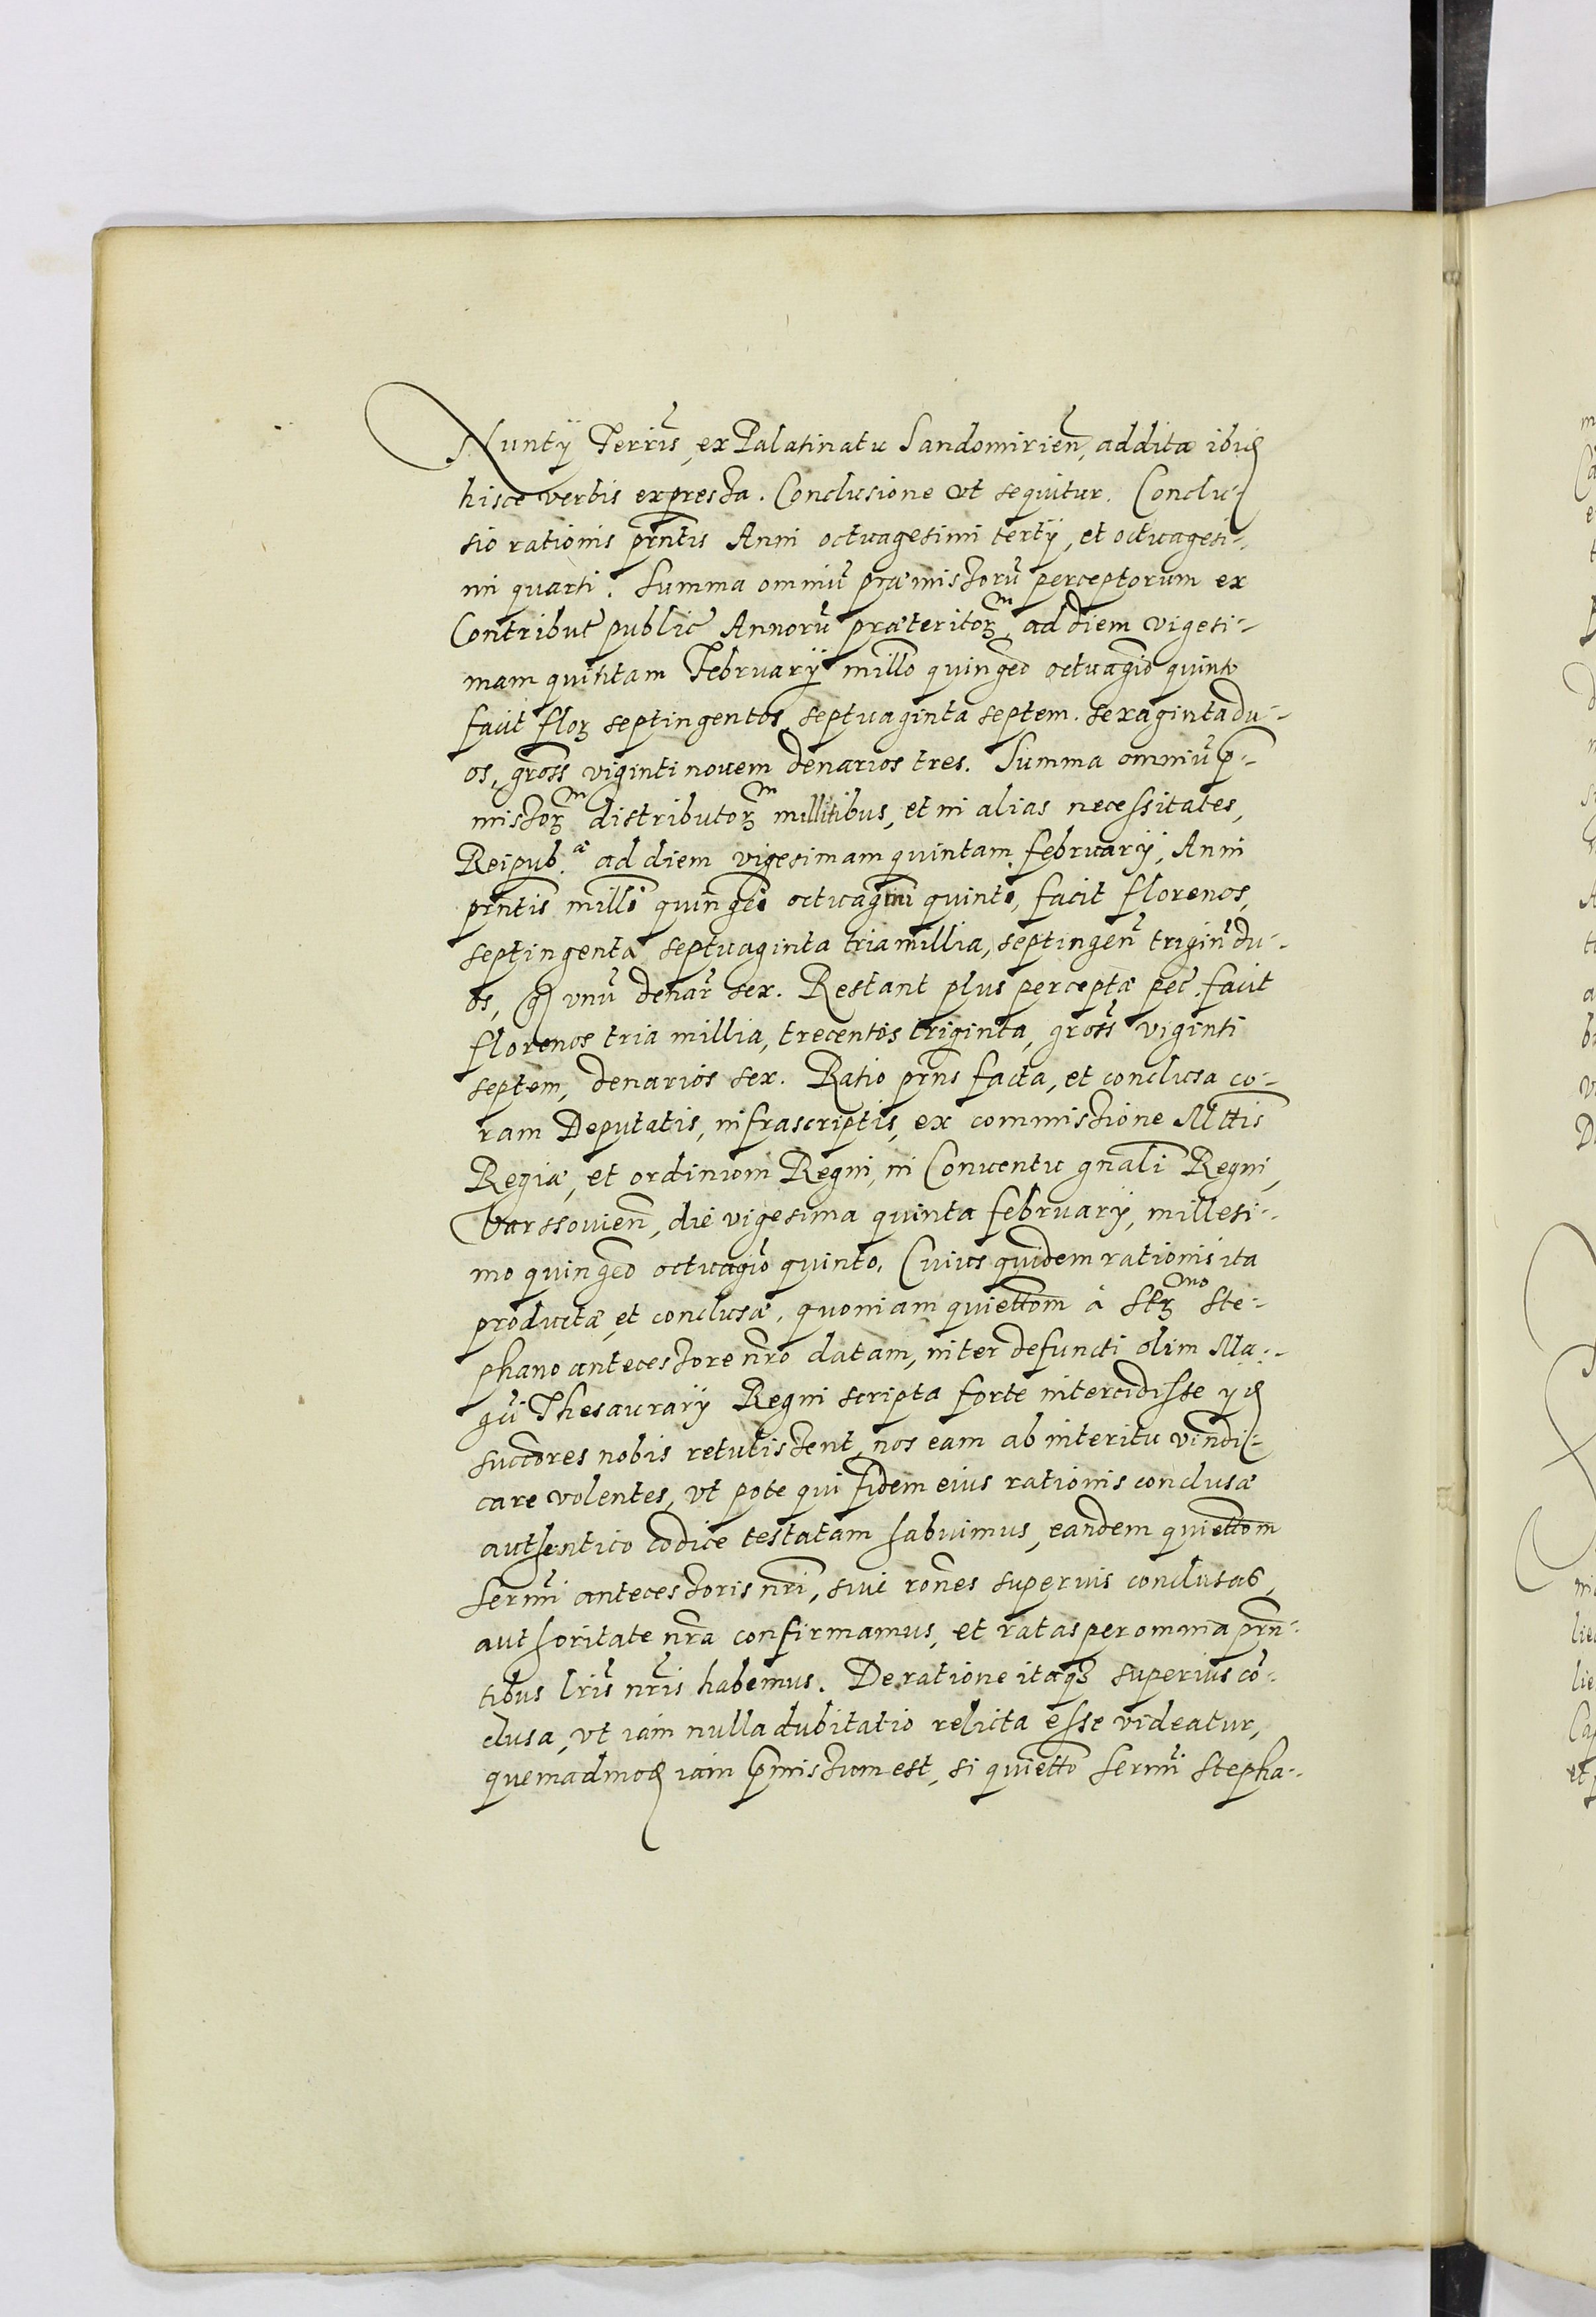 Nuntÿ Terrīs, ex Palatinatu Sandomirień, addita ibid
hisce verbis expressa. Conclusione vt sequitur. Conclu-
sio rationis prñtis Anni octuagesimi tertÿ, et octuagesi-
mi quarti. Summa omniū præmissorū perceptorum ex
Contribut̄ public̄ Annorū præteritorᵐ, ad diem vigesi-
mam quintam Februarÿ millō quingēō octuagīō quinto
facit flor septingentos septuaginta septem. sexaginta du-
os, gross viginti nouem denarios tres. Summa omniū p̄-
missorᵐ distributorᵐ millitibus, et in alias necessitates,
Reipub.ᵃᵉ ad diem vigesimam quintam februarÿ, Anni
prñtis millī quingēī octuagīmi quinti, facit florenos,
septingenta septuaginta tria millia, septingen̄ trigin̄ du-
os, g vnū denar̄ sex. Restant plus perceptæ pec̄. facit
florenos tria millia, trecentos triginta, gross̄ viginti
septem, denarios sex. Ratio prñs facta, et conclusa co-
ram Deputatis, infrascriptis, ex commissione Mttis
Regiæ, et ordinum Regni, in Conuentu gnāli Regni,
Varssouień, die vigesima quinta februarÿ, millesi-
mo quingēō octuagīō quinto. Cuius quidem rationis ita
productæ, et conclusæ, quoniam quiettom̄ à Serᵐᵒ Ste-
phano antecessore nr̄o datam, inter defuncti olim Ma-
gcī Thesaurarÿ Regni scripta forte intercidisse yd
succ̄ores nobis retulissent, nos eam ab interitu vendi-
care volentes, vt pote qui fidem eius rationis conclusæ
authentico codice testatam habuimus, eandem quiettom̄
serm̄i antecessoris nr̄i, siue ron̄es superius conclusas,
authoritate nr̄a confirmamus, et ratas per omnia prn̄-
tibus lr̄is nr̄is habemus. De ratione itaq superius cō-
clusa, vt iam nulla dubitatio relicta esse videatur,
quemadmod iam p̄missum est, si quiettō serm̄i Stepha-